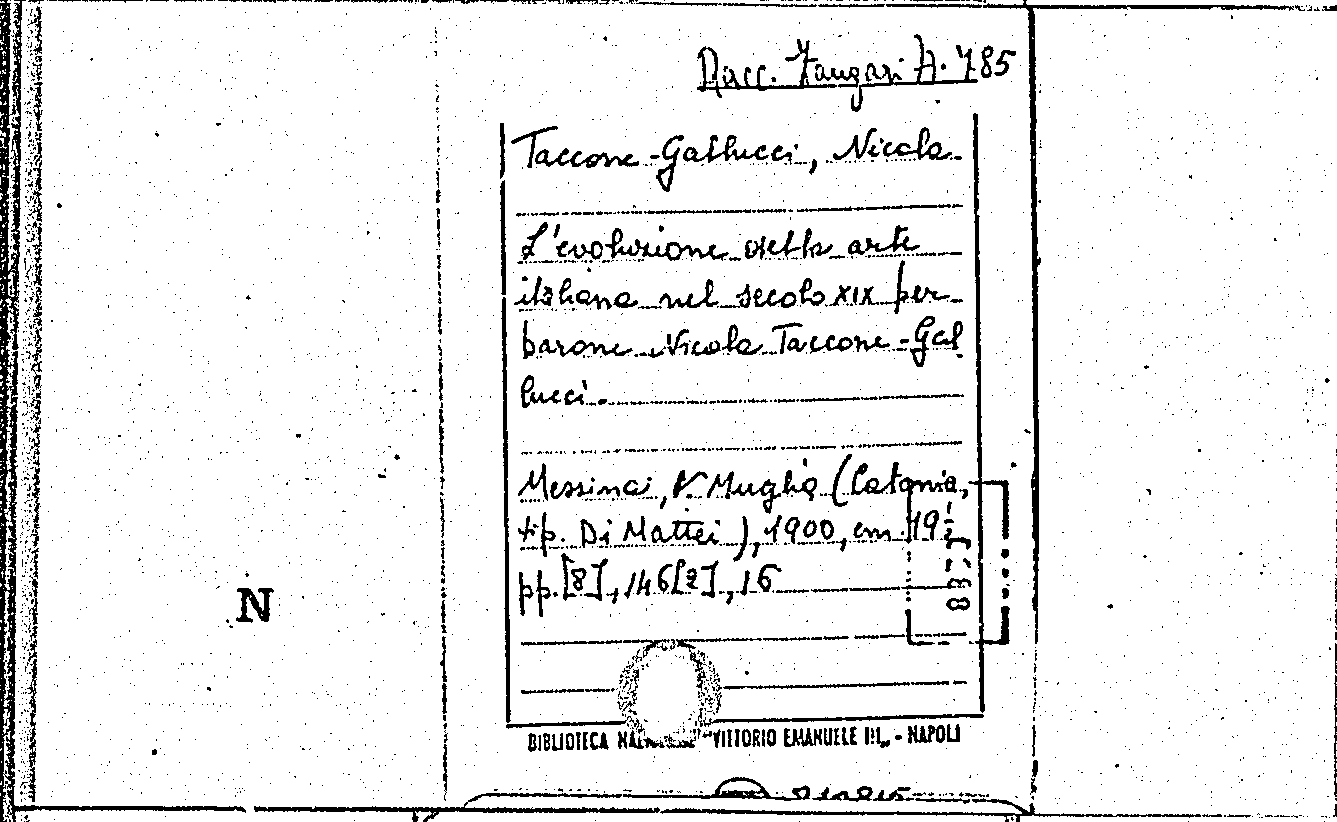 Racc. Zangari A. 785
Taccone-Gallucci, Nicola
L'evoluzione della arte
italiana nel secolo XIX per
barone Nicola Taccone-Gal
lucci.
Messina, A. Muglia (Catania,
tip. Di Mattei), 1900, cm 19½
pp. [8], 146 [2], 16
N
BIBLIOTECA NAZIONALE "VITTORIO EMANUELE III„ - NAPOLI